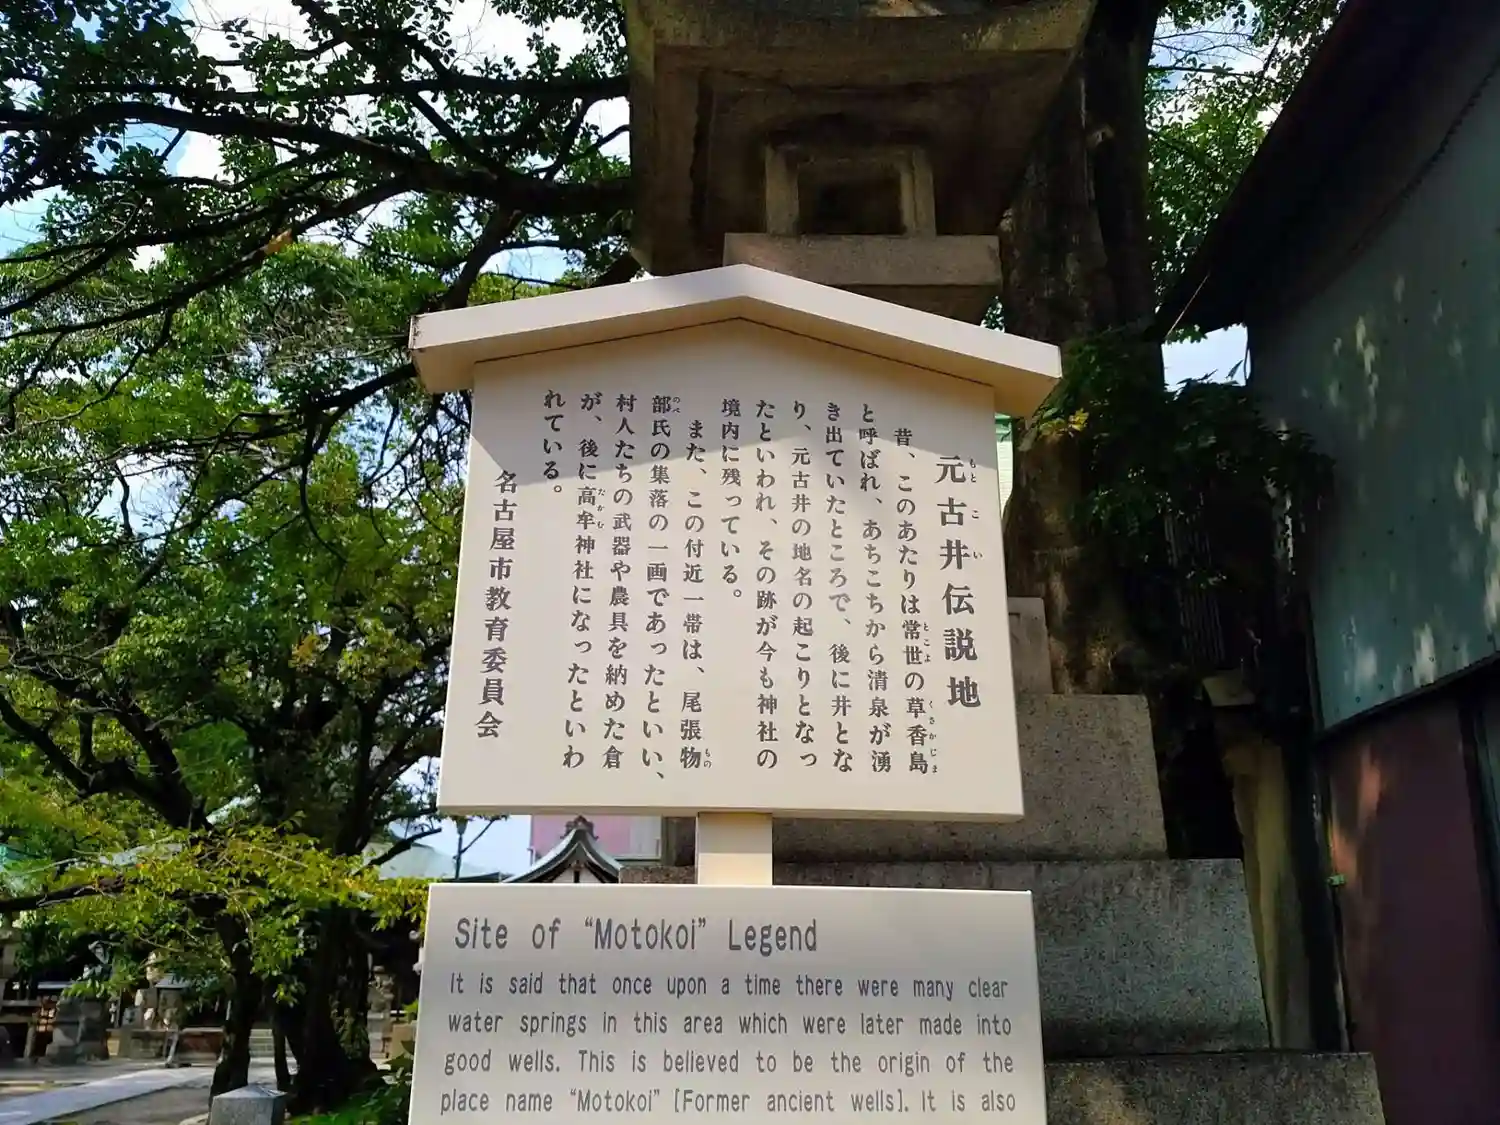 元古井伝説地
もとこい
昔、このあたりは常世の草香島
とこよ くさかじま
と呼ばれ、あちこちから清泉が湧
き出ていたところで、後に井とな
り、元古井の地名の起こりとなっ
たといわれ、その跡が今も神社の
境内に残っている。
また、この付近一帯は、尾張物
もの
部氏の集落の一画であったといい、
のべ
村人たちの武器や農具を納めた倉
が、後に高牟神社になったといわ
たかむ
れている。
名古屋市教育委員会
Site of “Motokoi” Legend
It is said that once upon a time there were many clear
water springs in this area which were later made into
good wells. This is believed to be the origin of the
place name “Motokoi” [Former ancient wells]. It is also